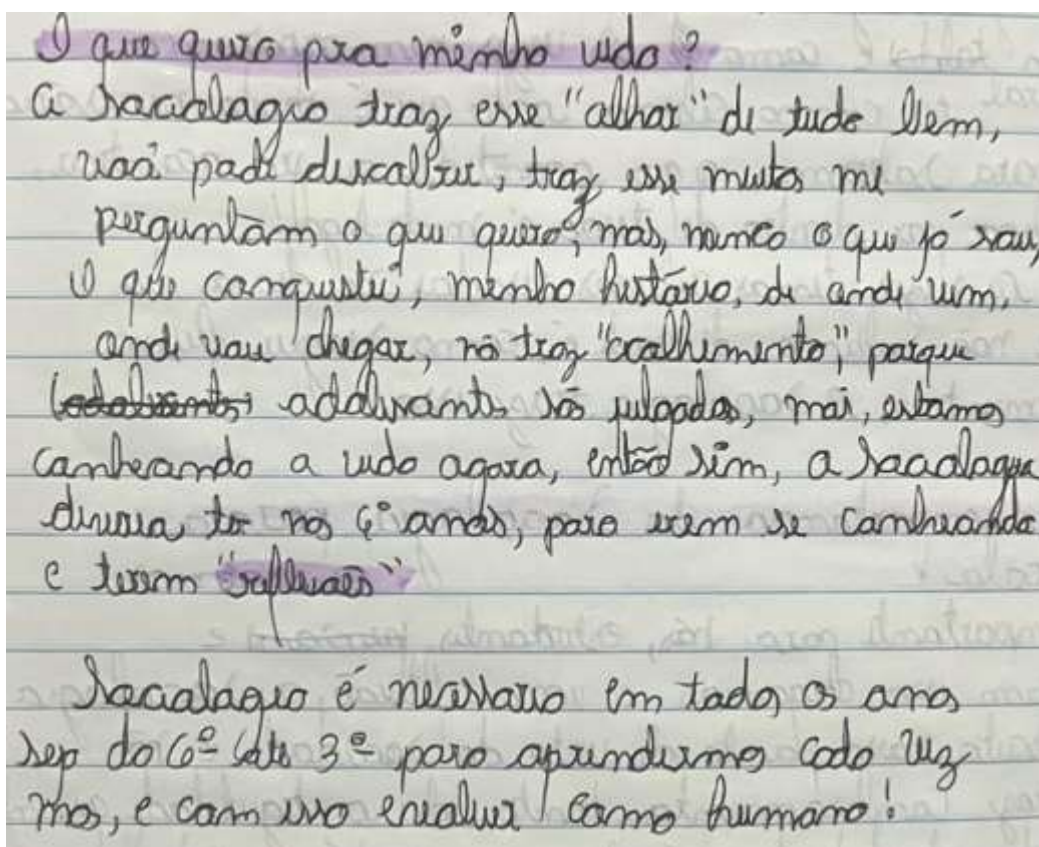 O que quero pra minha vida?
A Sociologia traz esse "olhar" de tudo bem,
você pode descobrir, traz esse muitos me
perguntam o que quero, mas, nunca o que já sou,
O que conquistei, minha história, de onde vim,
onde vou chegar, nos traz "acolhimento," porque
adolescentes são julgados, mas, estamos
conhecendo a vida agora, então sim, a Sociologia
deveria ter nos 6º anos, para irem se conhecendo
e terem "reflexões"
Sociologia é necessario em todos os anos
sej do 6º ate 3º para aprendermos cada vez
mas, e com isso evoluir como humano!